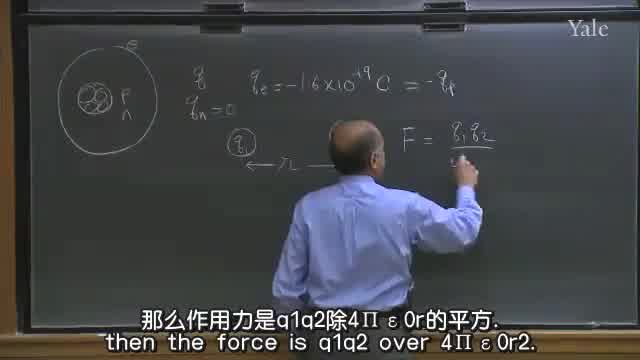 Yale
e
P
n
q
qe = -1.6×10⁻¹⁹ C = -qp
qn = 0
q1
r
F = q1 q2
那么作用力是q1q2除4Πε0r的平方.
then the force is q1q2 over 4Πε0r2.